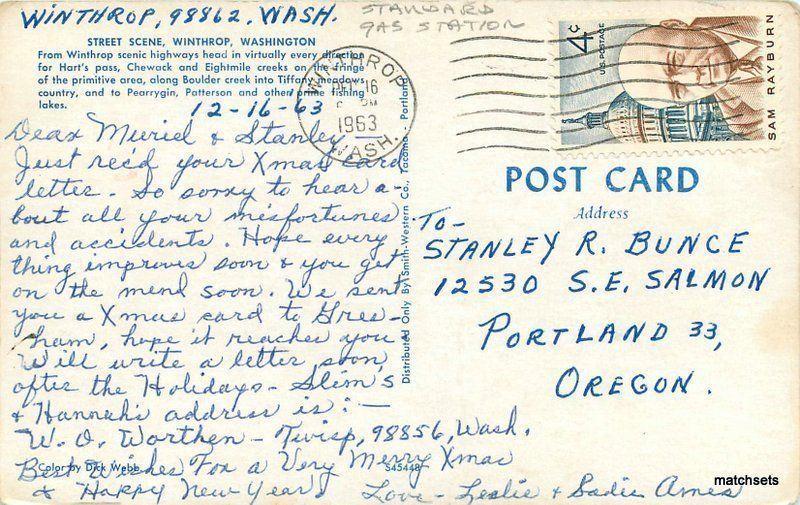 WINTHROP, 98862, WASH.
STANDARD
GAS STATION
STREET SCENE, WINTHROP, WASHINGTON
From Winthrop scenic highways head in virtually every direction
for Hart's pass, Chewack and Eightmile creeks on the fringe
of the primitive area, along Boulder creek into Tiffany meadows
country, and to Pearrygin, Patterson and other prime fishing
lakes.
12-16-63
Dear Muriel & Stanley
Just recd your Xmas card
letter. So sorry to hear a-
bout all your misfortunes
and accidents. Hope every
thing improves soon & you get
on the mend soon. We sent
you a Xmas card to Gres-
ham, hope it reaches you
Will write a letter soon,
after the Holidays - Slim's
& Hannah's address is: -
W. O. Worthen - Twisp, 98856, Wash.
Best Wishes For a Very Merry Xmas
& Happy New Year. Love - Leslie & Sadie Ames
Color by Dick Webb
S45448
Distributed Only By Smith-Western Co., Tacoma - Portland
WINTHROP
DEC 16
PM
1963
WASH.
4¢
U.S. POSTAGE
SAM RAYBURN
POST CARD
Address
To-
STANLEY R. BUNCE
12530 S.E. SALMON
PORTLAND 33,
OREGON.
matchsets